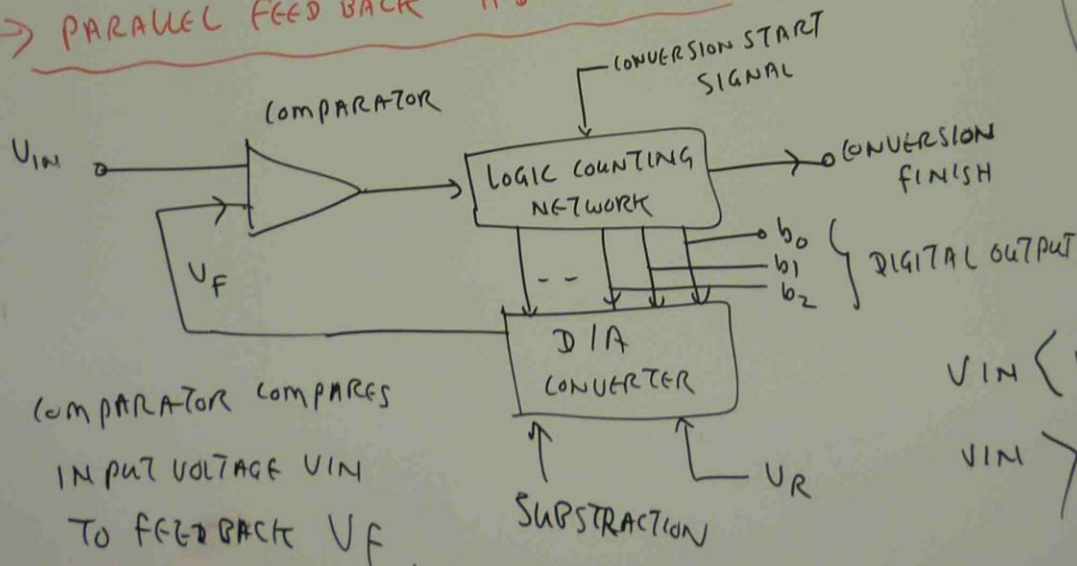 → PARALLEL FEEDBACK
CONVERSION START
SIGNAL
COMPARATOR
VIN
LOGIC COUNTING
NETWORK
CONVERSION
FINISH
b0
b1
b2
DIGITAL OUTPUT
VF
- -
D/A
CONVERTER
VIN <
VIN >
COMPARATOR COMPARES
INPUT VOLTAGE VIN
TO FEEDBACK VF
SUBSTRACTION
VR